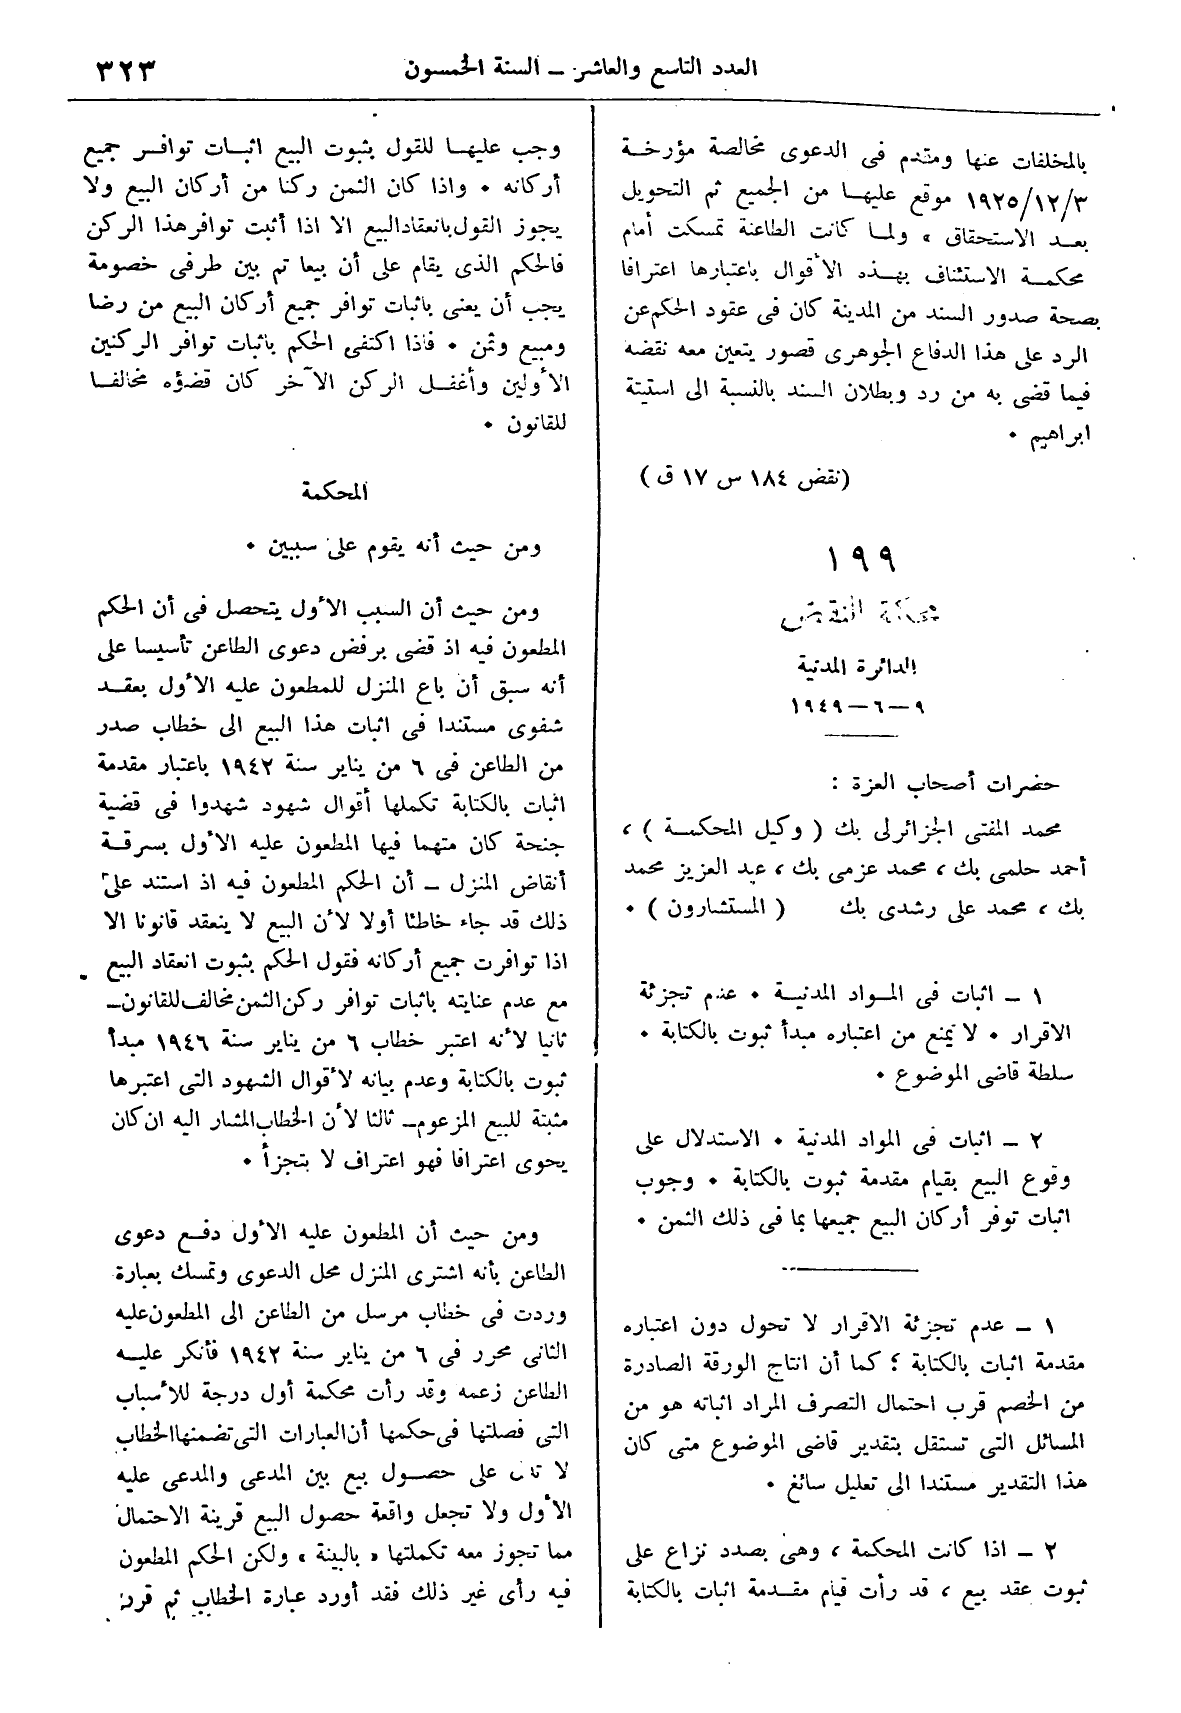 العدد التاسع والعاشر — السنة الخمسون
٣٢٣
بالمخلفات عنها ومتدم فى الدعوى مخالصة مؤرخة
١٩٢٥/١٢/٣ موقع عليها من الجميع ثم التحويل
بعد الاستحقاق » ولما كانت الطاعنة تمسكت أمام
محكمة الاستئناف بهذه الأقوال باعتبارها اعترافا
بصحة صدور السند من المدينة كان فى عقود الحكم عن
الرد على هذا الدفاع الجوهرى قصور يتعين معه نقضه
فيما قضى به من رد وبطلان السند بالنسبة الى استيتة
ابراهيم .
(نقض ١٨٤ س ١٧ ق )
١٩٩
محكمة النقض
الدائرة المدنية
٩ — ٦ — ١٩٤٩
حضرات أصحاب العزة :
محمد المفتى الجزائرلى بك ( وكيل المحكمة ) ،
أحمد حلمى بك ، محمد عزمى بك ، عبد العزيز محمد
بك ، محمد على رشدى بك ( المستشارون ) .
١ — اثبات فى المواد المدنية . عدم تجزئة
الاقرار . لا يمنع من اعتباره مبدأ ثبوت بالكتابة .
سلطة قاضى الموضوع .
٢ — اثبات فى المواد المدنية . الاستدلال على
وقوع البيع بقيام مقدمة ثبوت بالكتابة . وجوب
اثبات توفر أركان البيع جميعها بما فى ذلك الثمن .
١ — عدم تجزئة الاقرار لا تحول دون اعتباره
مقدمة اثبات بالكتابة ؛ كما أن انتاج الورقة الصادرة
من الخصم قرب احتمال التصرف المراد اثباته هو من
المسائل التى تستقل بتقدير قاضى الموضوع متى كان
هذا التقدير مستندا الى تعليل سائغ .
٢ — اذا كانت المحكمة ، وهى بصدد نزاع على
ثبوت عقد بيع ، قد رأت قيام مقدمة اثبات بالكتابة
وجب عليها للقول بثبوت البيع اثبات توافر جميع
أركانه . واذا كان الثمن ركنا من أركان البيع ولا
يجوز القول بانعقاد البيع الا اذا أثبت توافر هذا الركن
فالحكم الذى يقام على أن بيعا تم بين طرفى خصومة
يجب أن يعنى باثبات توافر جميع أركان البيع من رضا
ومبيع وثمن . فاذا اكتفى الحكم باثبات توافر الركنين
الأولين وأغفل الركن الآخر كان قضؤه مخالفا
للقانون .
المحكمة
ومن حيث أنه يقوم على سببين .
ومن حيث أن السبب الأول يتحصل فى أن الحكم
المطعون فيه اذ قضى برفض دعوى الطاعن تأسيسا على
أنه سبق أن باع المنزل للمطعون عليه الأول بعقد
شفوى مستندا فى اثبات هذا البيع الى خطاب صدر
من الطاعن فى ٦ من يناير سنة ١٩٤٢ باعتبار مقدمة
اثبات بالكتابة تكملها أقوال شهود شهدوا فى قضية
جنحة كان متهما فيها المطعون عليه الأول بسرقة
أنقاض المنزل — أن الحكم المطعون فيه اذ استند على
ذلك قد جاء خاطئا أولا لأن البيع لا ينعقد قانونا الا
اذا توافرت جميع أركانه فقول الحكم بثبوت انعقاد البيع
مع عدم عنايته باثبات توافر ركن الثمن مخالف للقانون —
ثانيا لأنه اعتبر خطاب ٦ من يناير سنة ١٩٤٦ مبدأ
ثبوت بالكتابة وعدم بيانه لأقوال الشهود التى اعتبرها
مثبتة للبيع المزعوم — ثالثا لأن الخطاب المشار اليه ان كان
يحوى اعترافا فهو اعتراف لا يتجزأ .
ومن حيث أن المطعون عليه الأول دفع دعوى
الطاعن بأنه اشترى المنزل محل الدعوى وتمسك بعبارة
وردت فى خطاب مرسل من الطاعن الى المطعون عليه
الثانى محرر فى ٦ من يناير سنة ١٩٤٢ فأنكر عليه
الطاعن زعمه وقد رأت محكمة أول درجة للأسباب
التى فصلتها فى حكمها أن العبارات التى تضمنها الخطاب
لا على حصول بيع بين المدعى والمدعى عليه
الأول ولا تجعل واقعة حصول البيع قرينة الاحتمال
مما تجوز معه تكملتها « بالبينة » ولكن الحكم المطعون
فيه رأى غير ذلك فقد أورد عبارة الخطاب ثم قرر